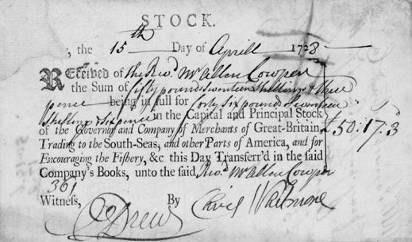 STOCK.
, the 15th Day of Aprill 1728
Received of the Revd. Mr Allen Cowper
the Sum of fifty pounds Seventeen Shillings & three
pence being in full for Forty Six pounds Seventeen
Shillings & Six pence in the Capital and Principal Stock
of the Governor and Company of Merchants of Great-Britain £50:17:3
Trading to the South-Seas, and other Parts of America, and for
Encouraging the Fishery, &c this Day Transferr'd in the said
Company's Books, unto the said Revd. Mr Allen Cowper
361
Witness, By
Drew